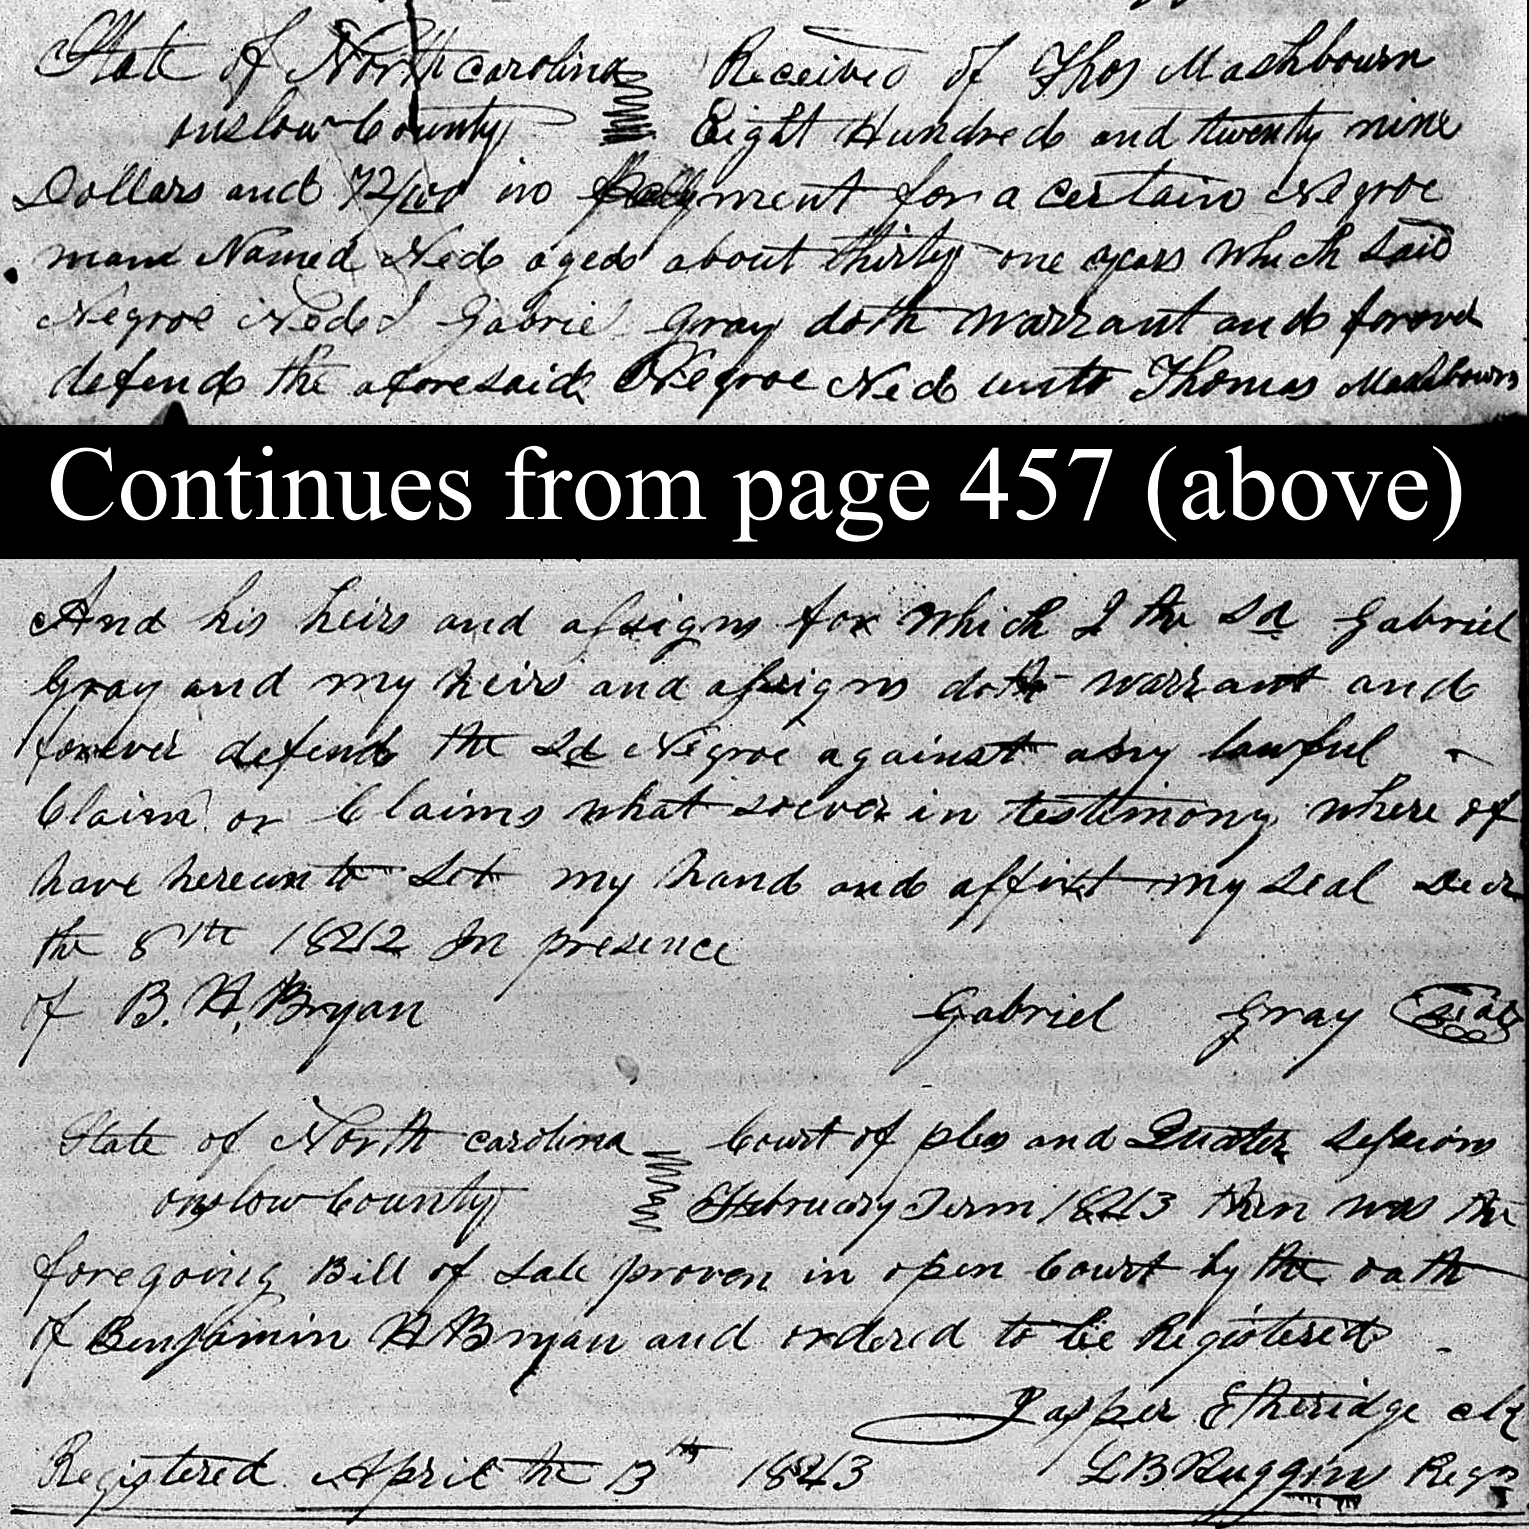 State of North carolina Received of Thos Mashbourn
onslow County Eight Hundred and twenty nine
Dollars and 72/100 in payment for a certain Negroe
man Named Ned aged about thirty one years which said
Negroe Ned I Gabriel Gray doth warrant and forever
defend the aforesaid Negroe Ned unto Thomas Mashbourn
Continues from page 457 (above)
And his heirs and assigns for which I the Sd Gabriel
Gray and my heirs and assigns doth warrant and
forever defend the Sd Negroe against any lawful
Claim or Claims what soever in testimony where of
have hereunto Set my hand and affixt my seal Decr
the 8th 1842 In presence
of B. H. Bryan Gabriel Gray Seal
State of North carolina Court of pleas and Quater Sessions
onslow County February Term 1843 then was the
foregoing Bill of Sale proven in open Court by the oath
of Benjamin H Bryan and ordered to be Registered
Jasper Etheridge clk
Registered April the 13th 1843 L B Huggins Regr